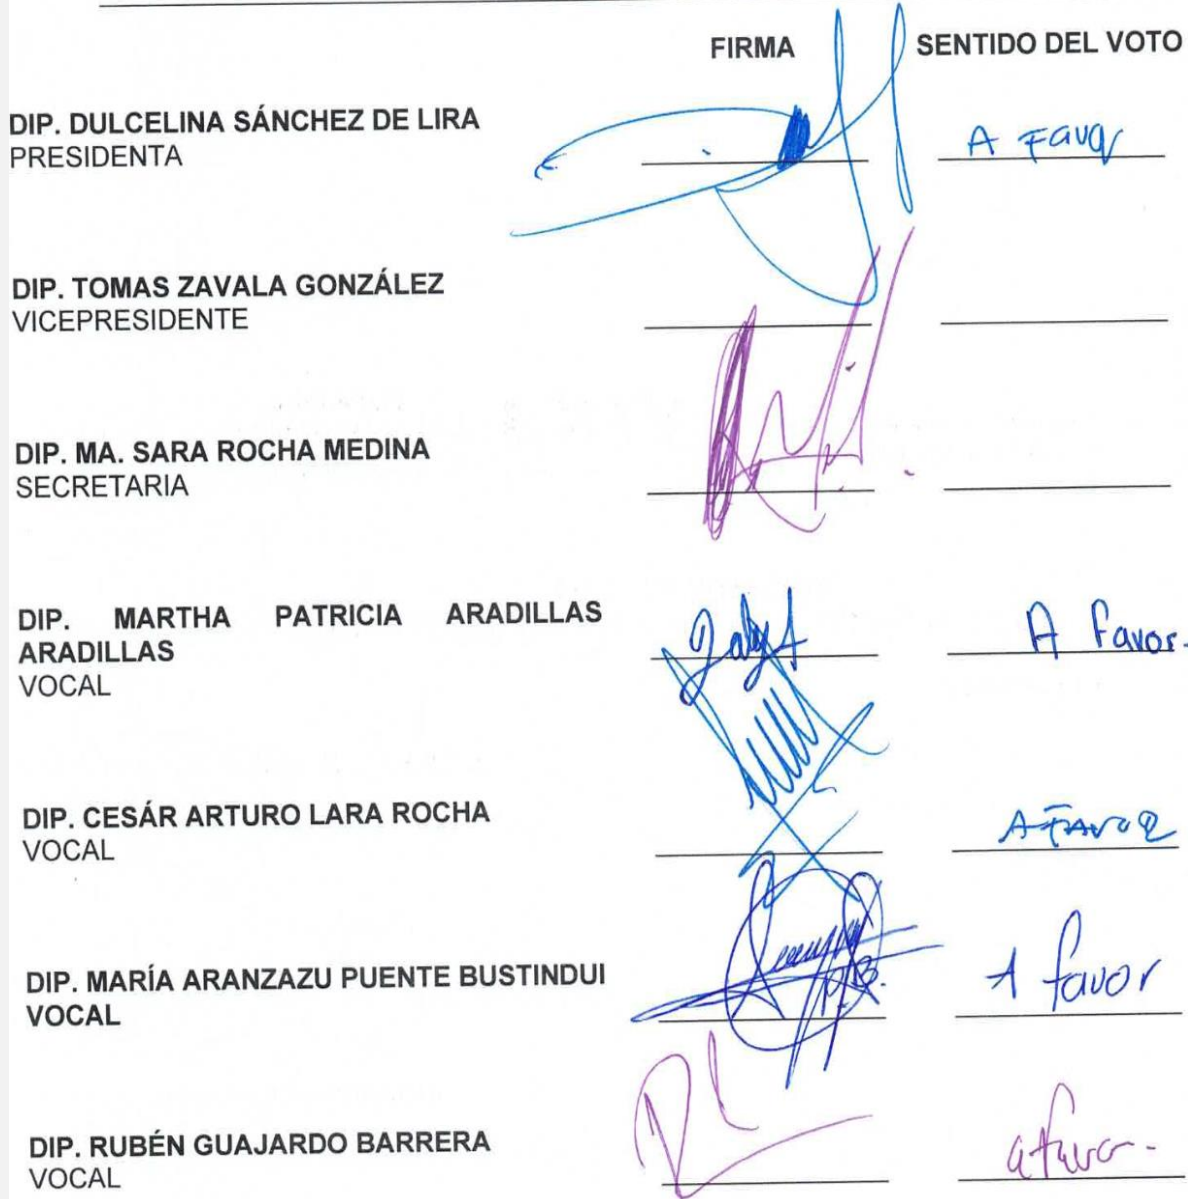 FIRMA SENTIDO DEL VOTO
DIP. DULCELINA SÁNCHEZ DE LIRA A Favor
PRESIDENTA
DIP. TOMAS ZAVALA GONZÁLEZ
VICEPRESIDENTE
DIP. MA. SARA ROCHA MEDINA
SECRETARIA
DIP. MARTHA PATRICIA ARADILLAS A Favor.
ARADILLAS
VOCAL
DIP. CESÁR ARTURO LARA ROCHA A FAVOR
VOCAL
DIP. MARÍA ARANZAZU PUENTE BUSTINDUI A favor
VOCAL
DIP. RUBÉN GUAJARDO BARRERA a favor.
VOCAL